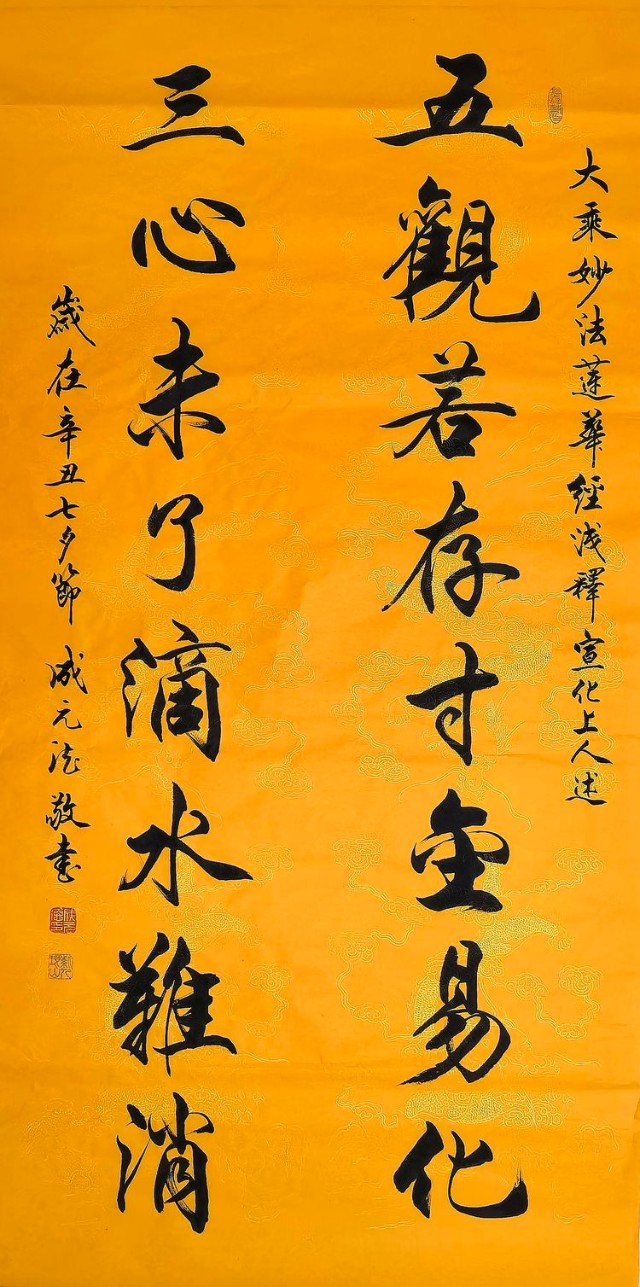 大乘妙法蓮華經浅釋宣化上人述
五觀若存寸金易化
三心未了滴水難消
歲在辛丑七夕節成元法敬書